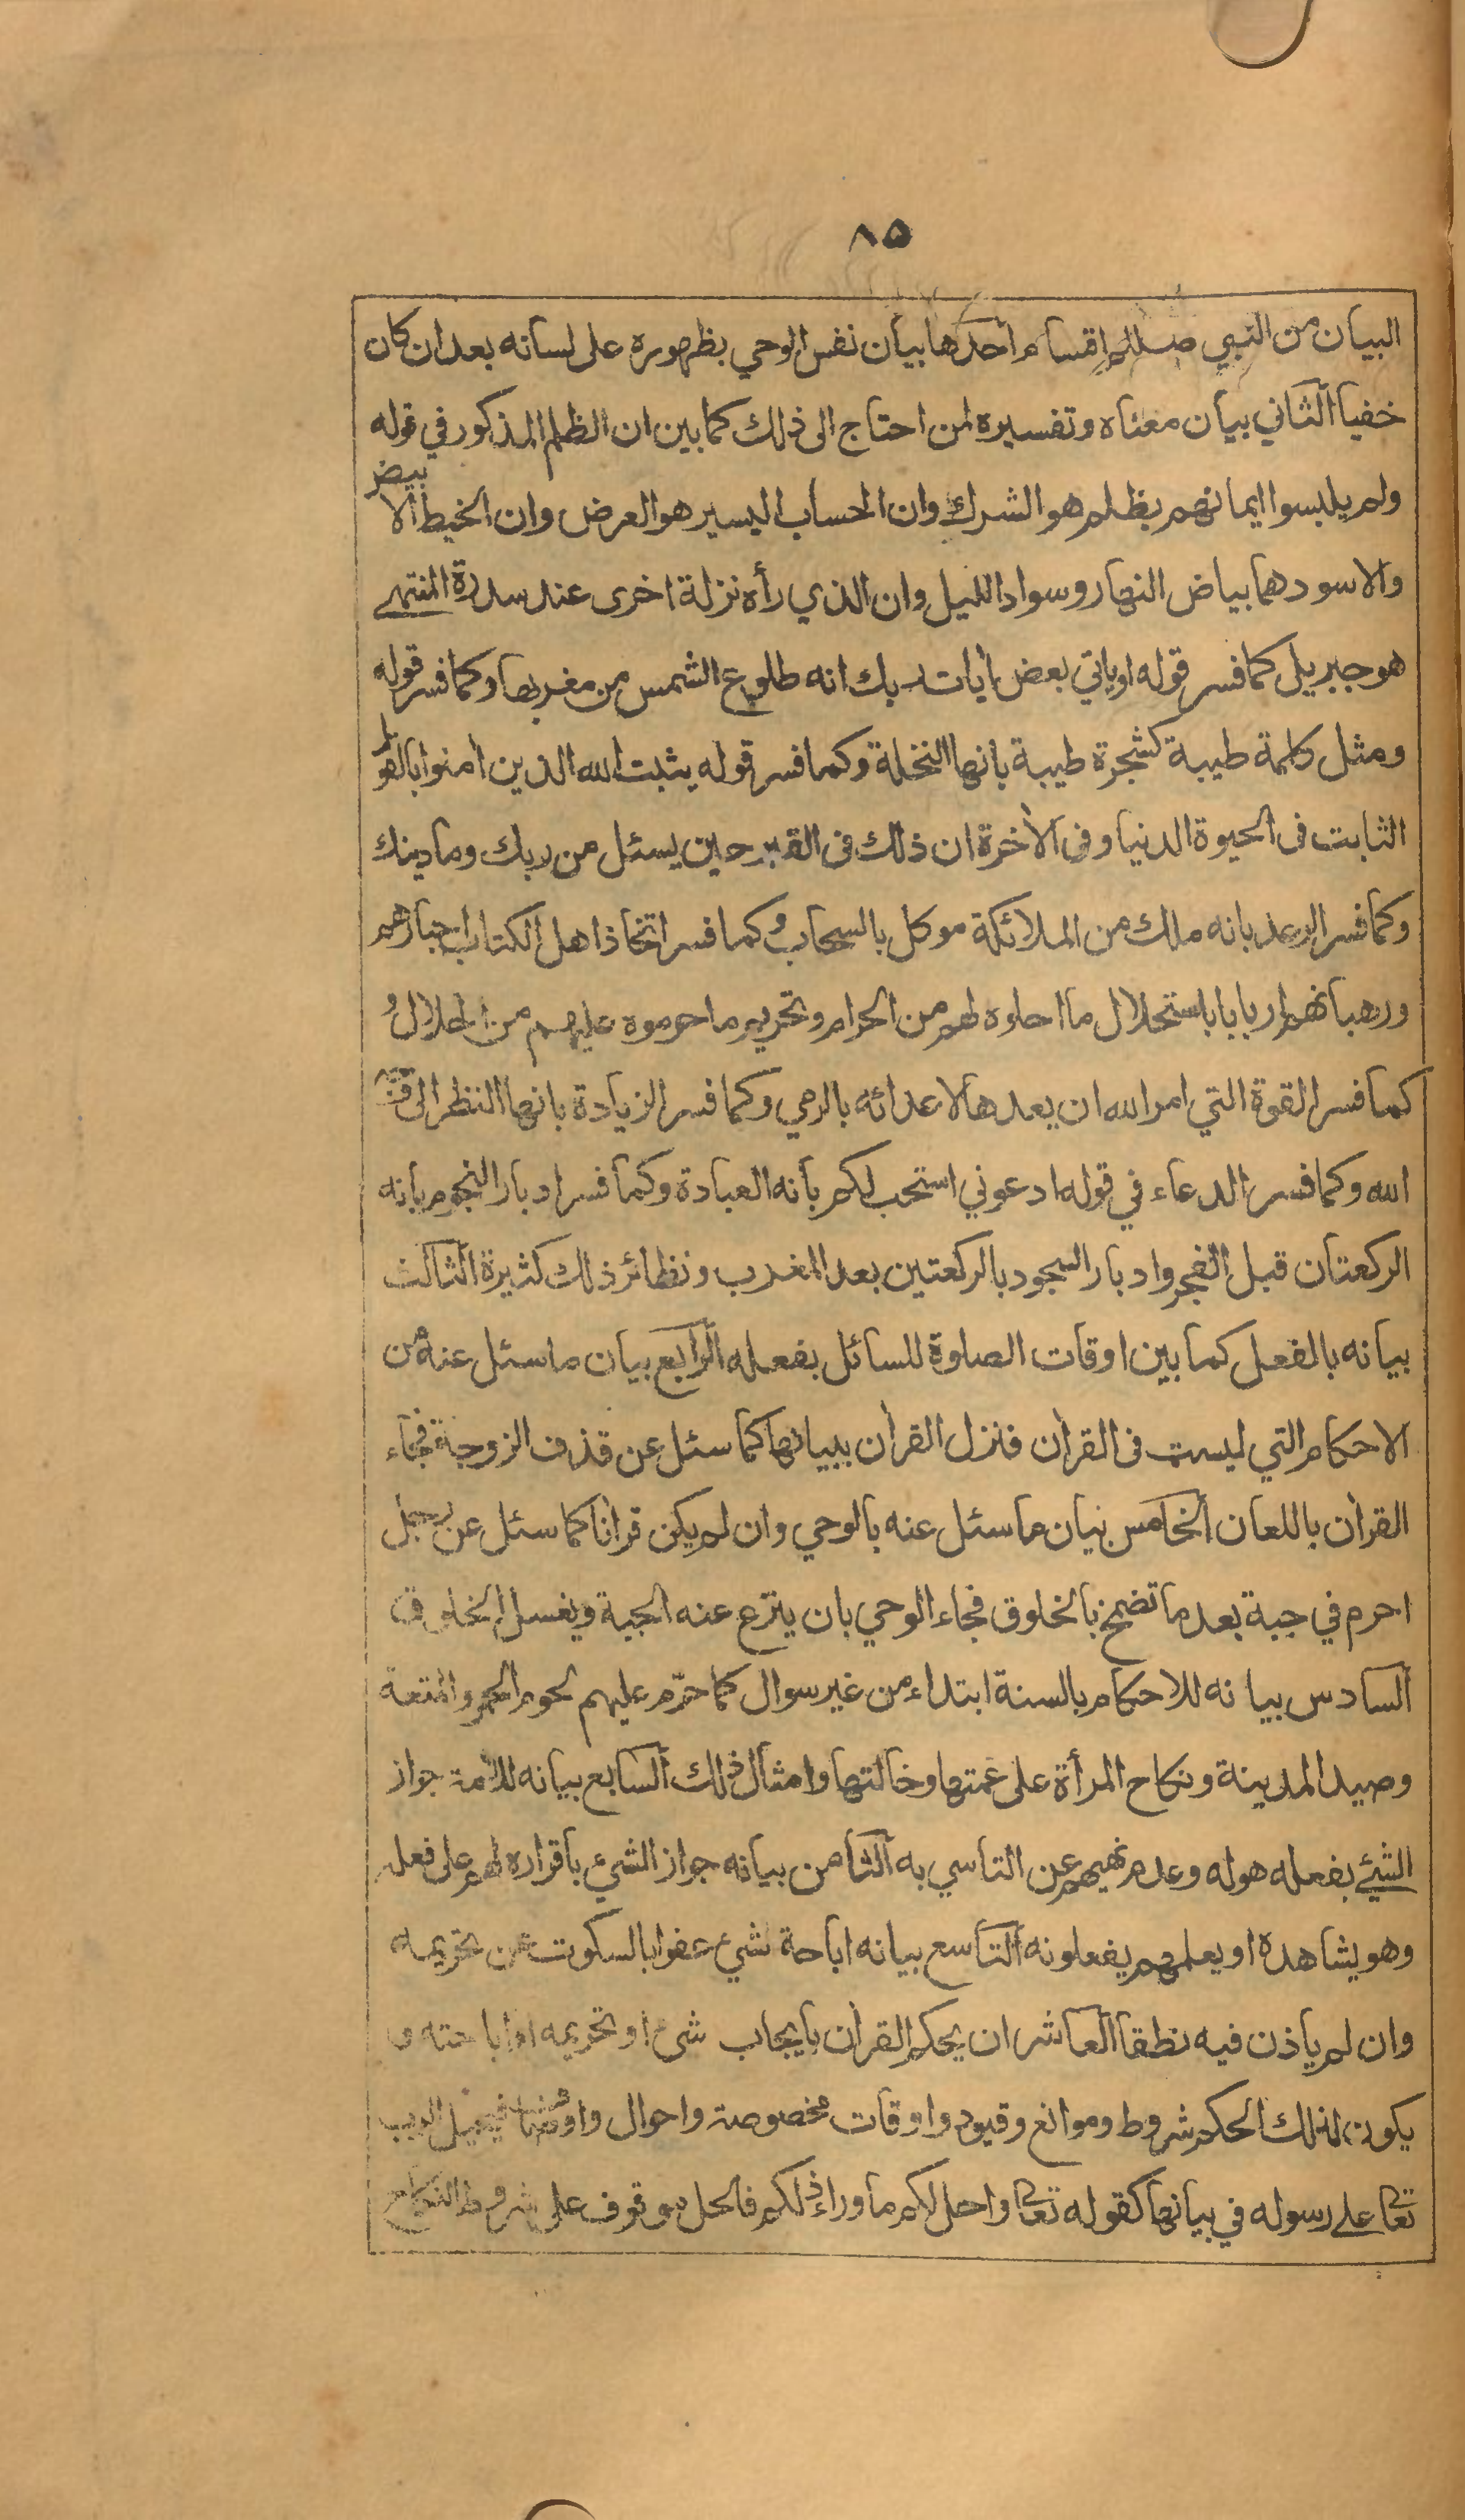 ٨٥
البيان من النبي صللم اقسام احدها بيان نفس الوحي بظهوره على لسانه بعد ان كان
خفيا الثاني بيان معناه وتفسيره لمن احتاج الى ذلك كما بين ان الظلم المذكور في قوله
ولم يلبسوا ايمانهم بظلم هو الشرك وان الحساب اليسير هو العرض وان الخيط الابيض
والاسود هما بياض النهار وسواد الليل وان الذي رأه نزلة اخرى عند سدرة المنتهى
هو جبريل كما فسر قوله او ياتي بعض أيات ربك انه طلوع الشمس من مغربها وكما فسر قوله
ومثل كلمة طيبة كشجرة طيبة بانها النخلة وكما فسر قوله يثبت الله الذين امنوا بالقول
الثابت فى الحيوة الدنيا وفى الأخرة ان ذلك فى القبر حين يسئل من ربك وما دينك
وكما فسر الرعد بانه ملك من الملائكة موكل بالسحاب وكما فسر اتخاذ اهل الكتاب احبارهم
ورهبانهم اربابا باستحلال ما احلوه لهم من الحرام وتحريم ما حرموه عليهم من الحلال و
كما فسر القوة التي امر الله ان يعدها لاعدائه بالرمي وكما فسر الزيادة بانها النظر الى
الله وكما فسر الدعاء في قوله ادعوني استجب لكم بانه العبادة وكما فسر ادبار النجوم بانه
الركعتان قبل الفجر وادبار السجود بالركعتين بعد المغرب ونظائر ذلك كثيرة الثالث
بيانه بالفعل كما بين اوقات الصلوة للسائل بفعله الرابع بيان ما سئل عنه من
الاحكام التي ليست فى القرأن فنزل القرأن ببيانها كما سئل عن قذف الزوجة فجاء
القرأن باللعان الخامس بيان ما سئل عنه بالوحي وان لم يكن قرأنا كما سئل عن رجل
احرم في جبة بعد ما تضمخ بالخلوق فجاء الوحي بان ينزع عنه الجبة ويغسل الخلوق
السادس بيانه للاحكام بالسنة ابتداء من غير سوال كما حرّم عليهم لحوم الحمر والمتعة
وصيد المدينة ونكاح المرأة على عمتها وخالتها وامثال ذلك السابع بيانه للامة جواز
الشيء بفعله هو له وعدم نهيهم عن التاسي به الثامن بيانه جواز الشيء باقراره لهم على فعله
وهو يشاهده او يعلمهم يفعلونه التاسع بيانه اباحة شيء عفوا بالسكوت عن تحريمه
وان لم ياذن فيه نطقا العاشر ان يحكم القرأن بايجاب شيء او تحريمه او اباحته و
يكون لذلك الحكم شروط وموانع وقيود واوقات مخصوصة واحوال واوصاف فيحيل الرب
تعا على رسوله في بيانها كقوله تعا واحل لكم ما وراء ذلكم فالحل موقوف على شروط النكاح